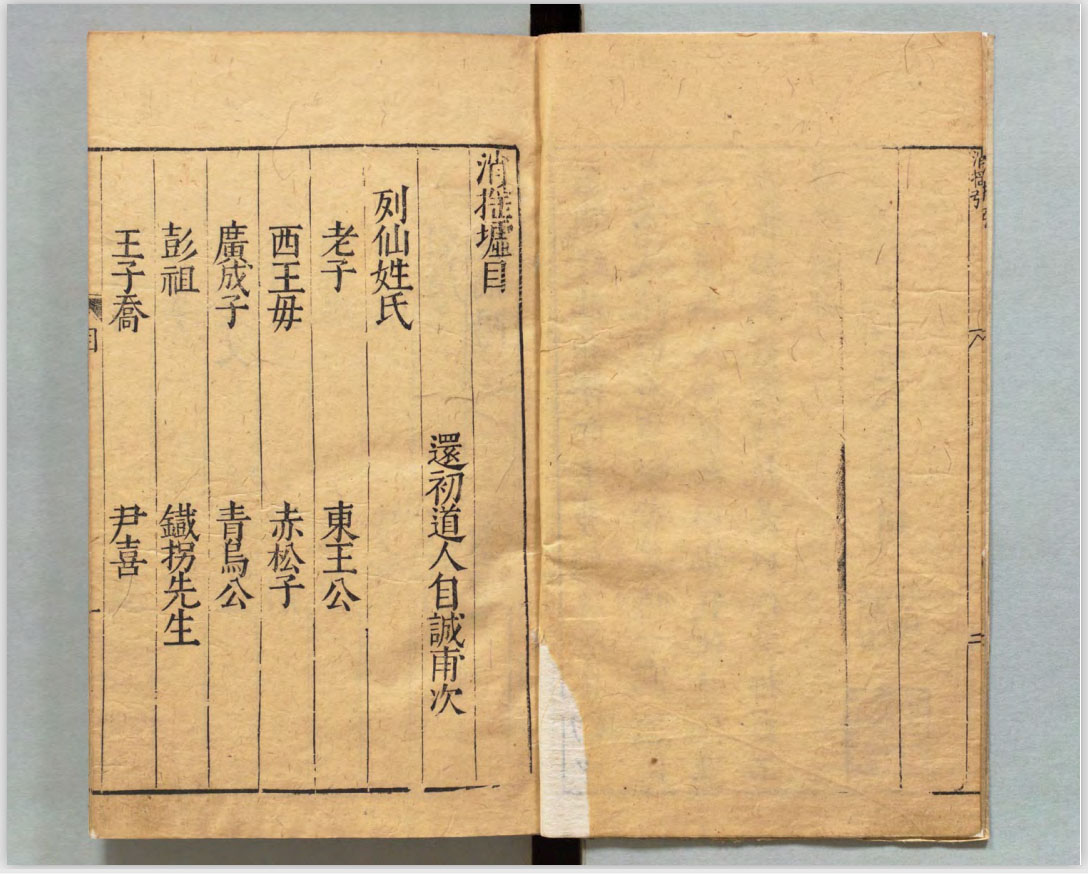 消搖墟目
還初道人自誠甫次
列仙姓氏
老子　東王公
西王毋　赤松子
廣成子　青烏公
彭祖　鐵拐先生
王子喬　尹喜
目